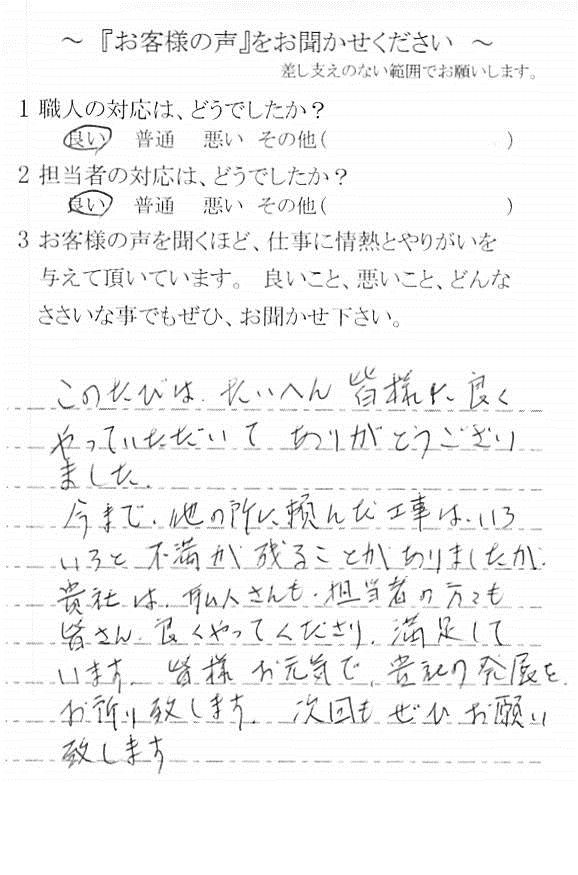 ～ 『お客様の声』をお聞かせください ～
差し支えのない範囲でお願いします。
1 職人の対応は、どうでしたか？
良い 普通 悪い その他( )
2 担当者の対応は、どうでしたか？
良い 普通 悪い その他( )
3 お客様の声を聞くほど、仕事に情熱とやりがいを
与えて頂いています。 良いこと、悪いこと、どんな
ささいな事でもぜひ、お聞かせ下さい。
このたびは、たいへん 皆様に 良く
やっていただいて ありがとうござり
ました。
今まで、他の所に頼んだ工事は、いろ
いろと 不満が 残ることがありましたが、
貴社は、 さんも、担当者の方々も
皆さん、良くやってくださり、満足して
います。 皆様 お元気で、貴社の発展を
お祈り致します。 次回も ぜひ お願い
致します